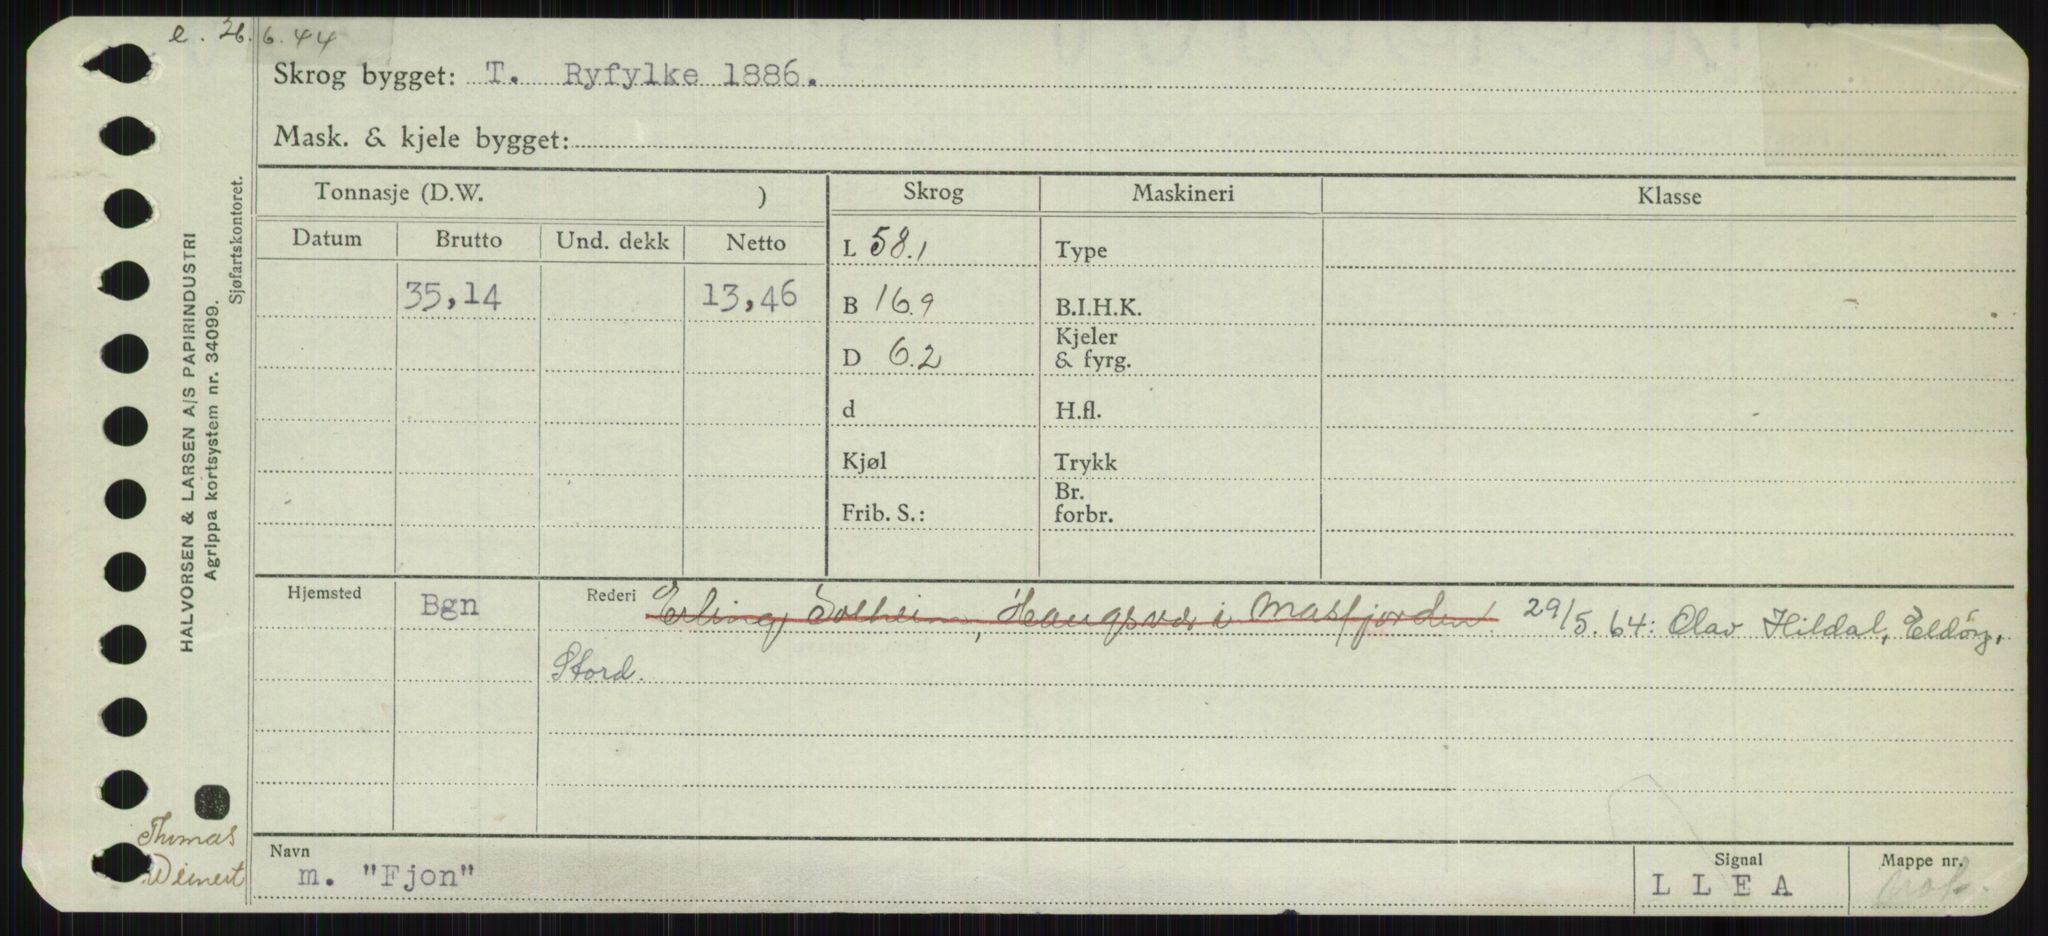 e. 26.6.44
Skrog bygget: T. Ryfylke 1886.
Mask. & kjele bygget:
Tonnasje (D.W. )
Skrog
Maskineri
Klasse
Datum
Brutto
Und. dekk
Netto
L 58.1
Type
35,14
13,46
B 16.9
B.I.H.K.
D 6.2
Kjeler
& fyrg.
d
H.fl.
Kjøl
Trykk
Frib. S.:
Br.
forbr.
Hjemsted
Bgn
Rederi
Erling Solheim, Haugsvær i Masfjorden. 29/5.64: Olav Hildal, Eldöy,
Stord.
Navn
m. "Fjon"
Signal
L L E A
Mappe nr.
HALVORSEN & LARSEN A/S PAPIRINDUSTRI
Agrippa kortsystem nr. 34099.
Sjøfartskontoret.
Thomas
Weinert